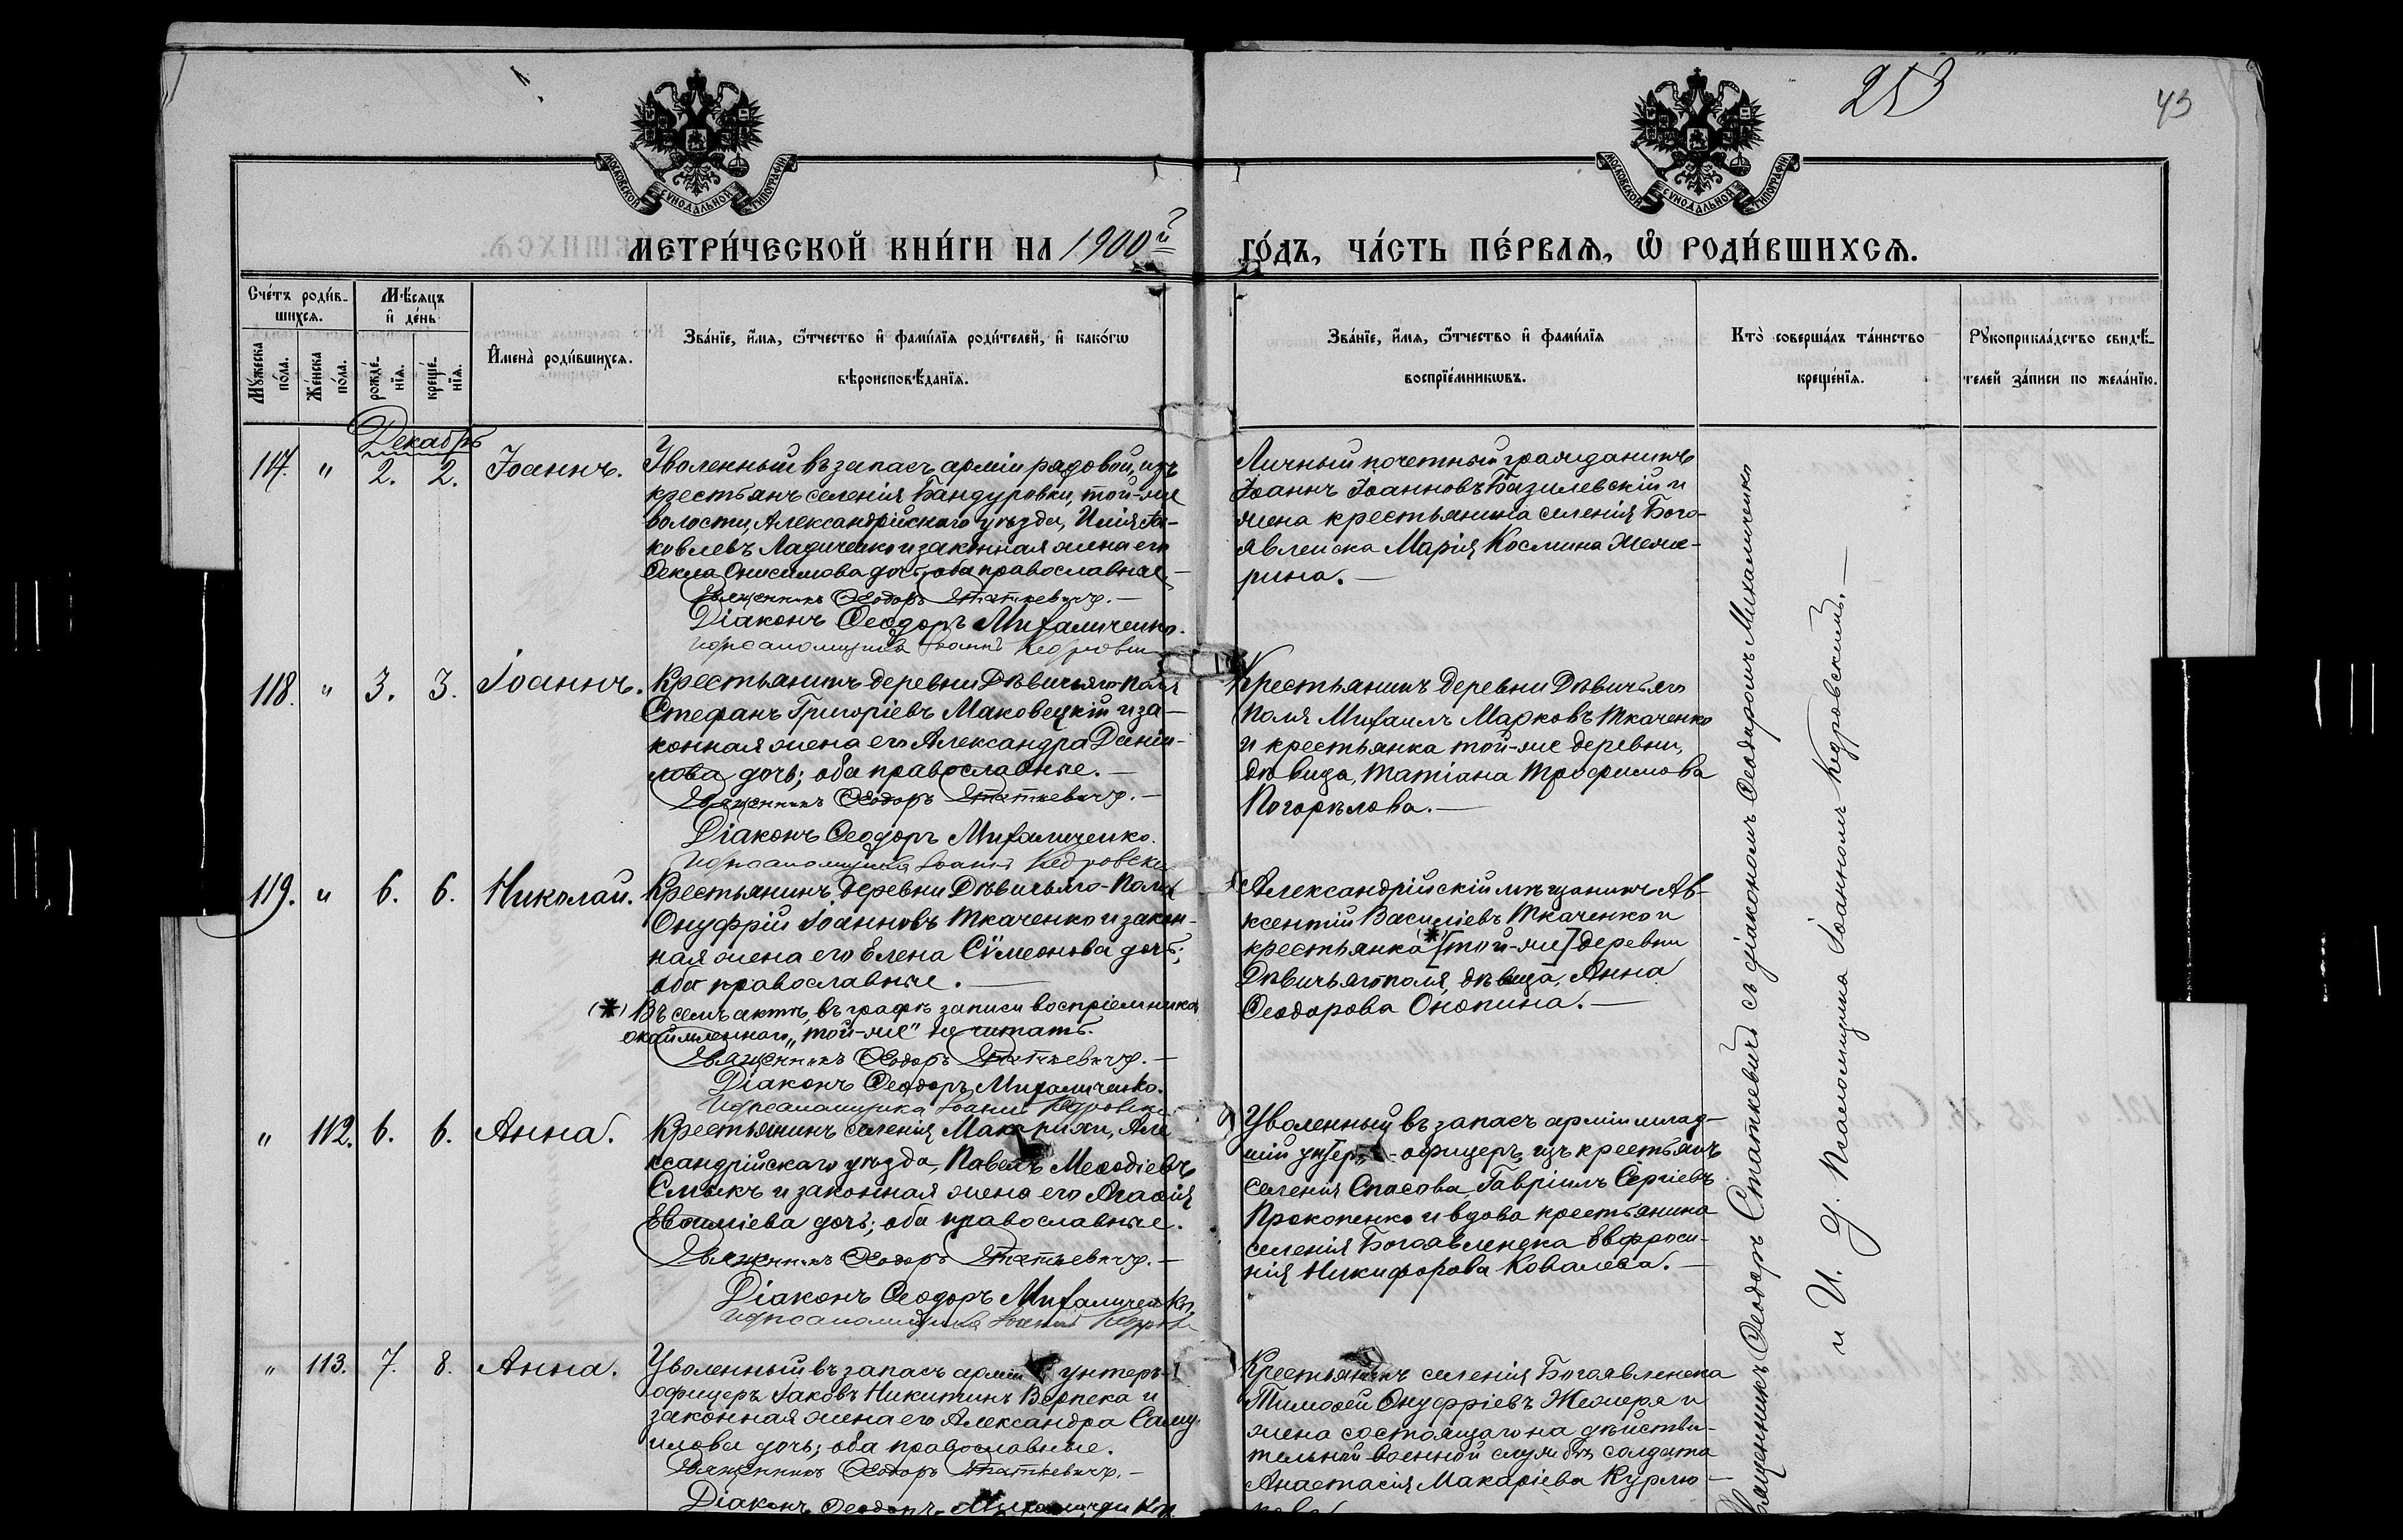 253
43
МОСКОВСКОЙ СѴНОДАЛЬНОЙ ТИПОГРАФІИ
МОСКОВСКОЙ СѴНОДАЛЬНОЙ ТИПОГРАФІИ
МЕТРИ́ЧЕСКОЙ КНИ́ГИ НА 1900й
ГО́ДЪ, ЧА́СТЬ ПЕ́РВАѦ, Ѡ҆ РОДИ́ВШИХСѦ.
Сче́тъ роди́в-
шихсѧ.
Мꙋ́жеска по́ла.
Же́нска по́ла.
Мѣ́сѧцъ
и҆ де́нь
рожде́-
нїѧ.
креще́-
нїѧ.
И҆мена̀ роди́вшихсѧ.
Зва́нїе, и҆́мѧ, ѻ҆́тчество и҆ фами́лїѧ роди́телей, и҆ како́гѡ
вѣроисповѣ́данїѧ.
Зва́нїе, и҆́мѧ, ѻ҆́тчество и҆ фами́лїѧ
воспрїе́мникѡвъ.
Кто̀ соверша́лъ та́инство
креще́нїѧ.
Рꙋкоприкла́дство свидѣ́-
телей за́писи по жела́нїю.
Декабрь
117. " 2. 2. Іоаннъ.
Уволенный въ запасъ арміи рядовой, изъ
крестьянъ селенія Бандуровки, той-же
волости, Александрійскаго уѣзда, Илія Іа-
ковлевъ Ладиченко и законная жена его
Ѳекла Онисимова дочь; оба православные.—
Священникъ Ѳеодоръ Статкевичъ.—
Діаконъ Ѳеодоръ Михаличенко.
И. д. псаломщика Іоаннъ Кедровскій
Личный почетный гражданинъ
Іоаннъ Іоанновъ Базилевскій и
жена крестьянина селенія Бого-
явленска Марія Космина Жеже-
рина.—
118. " 3. 3. Іоаннъ.
Крестьянинъ деревни Дѣвичьяго-Поля
Стефанъ Григоріевъ Маковецкій и за-
конная жена его Александра Даніи-
лова дочь; оба православные.—
Священникъ Ѳеодоръ Статкевичъ.—
Діаконъ Ѳеодоръ Михаличенко.
И. д. псаломщика Іоаннъ Кедровскій
Крестьянинъ деревни Дѣвичьяго
Поля Михаилъ Марковъ Ткаченко
и крестьянка той-же деревни,
дѣвица, Татіана Трофимова
Погорѣлова.—
119. " 6. 6. Николай.
Крестьянинъ деревни Дѣвичьяго-Поля
Онуфрій Іоанновъ Ткаченко и закон-
ная жена его Елена Сѵмеонова дочь;
оба православные.—
(*) Въ семъ актѣ, въ графѣ записи воспріемниковъ
окаймленнаго „той-же" не читать.
Священникъ Ѳеодоръ Статкевичъ.—
Діаконъ Ѳеодоръ Михаличенко.
И. д. псаломщика Іоаннъ Кедровскій
Александрійскій мѣщанинъ Ав-
ксентій Василіевъ Ткаченко и
крестьянка (*) [той-же] деревни
Дѣвичьяго поля, дѣвица, Анна
Ѳеодорова Онопина.—
" 112. 6. 6. Анна.
Крестьянинъ селенія Макарихи, Але
ксандрійскаго уѣзда, Павелъ Меѳодіевъ
Смыкъ и законная жена его Агаѳія
Евѳиміева дочь; оба православные.
Священникъ Ѳеодоръ Статкевичъ.—
Діаконъ Ѳеодоръ Михаличенко.
И. д. псаломщика Іоаннъ
Уволенный въ запасъ арміи млад-
шій унтеръ-офицеръ, изъ крестьянъ
селенія Спасова, Гавріилъ Сергіевъ
Прокопенко и вдова крестьянина
селенія Богоявленска Евфроси-
нія Никифорова Ковалева.—
" 113. 7. 8. Анна.
Уволенный въ запасъ арміи унтеръ-
офицеръ Іаковъ Никитинъ Верпека и
законная жена его Александра Саму-
илова дочь; оба православные.
Священникъ Ѳеодоръ Статкевичъ.—
Діаконъ Ѳеодоръ Михаличенко
Крестьянинъ селенія Богоявленска
Тимоѳей Онуфріевъ Жежеря и
жена состоящаго на дѣйстви-
тельной военной службѣ солдата
Анастасія Макаріева Курлю-
Священникъ Ѳеодоръ Статкевичъ съ діакономъ Ѳеодоромъ Михаличенко
и И. д. псаломщика Іоанномъ Кедровскимъ.—